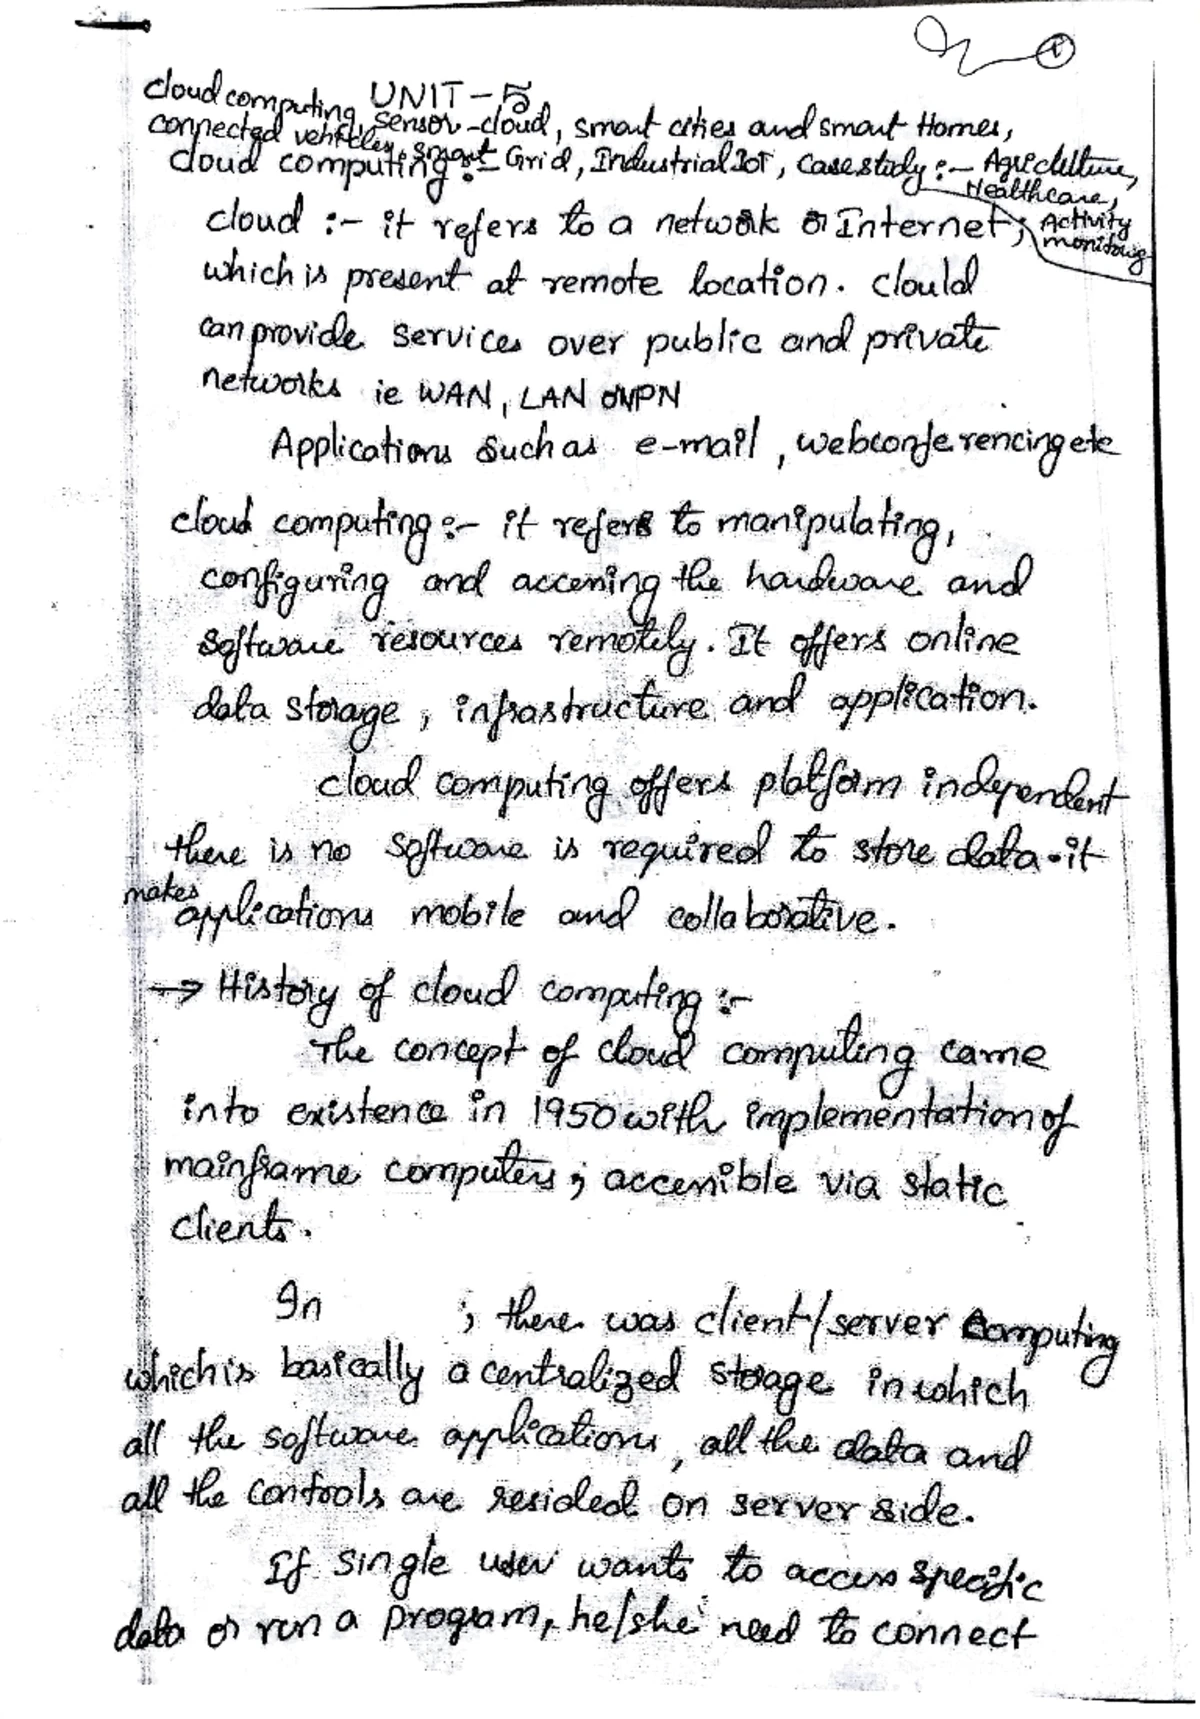 UNIT-5
cloud computing, sensor-cloud, smart cities and smart Homes,
connected vehicles, smart Grid, Industrial IoT, Case study :- Agriculture,
Healthcare,
Activity
monitoring
cloud computing :-
cloud :- it refers to a network or Internet;
which is present at remote location. clould
can provide services over public and private
networks ie WAN, LAN or VPN
Applications such as e-mail, webconferencing etc
cloud computing :- it refers to manipulating,
configuring and accessing the hardware and
software resources remotely. It offers online
data storage, infrastructure and application.
cloud computing offers platform independent
there is no software is required to store data. it
makes
applications mobile and collaborative.
→ History of cloud computing :-
The concept of cloud computing came
into existence in 1950 with implementation of
mainframe computers; accessible via static
clients.
In ; there was client/server computing
which is basically a centralized storage in which
all the software applications, all the data and
all the controls are resided on server side.
If single user wants to access specific
data or run a program, he/she need to connect